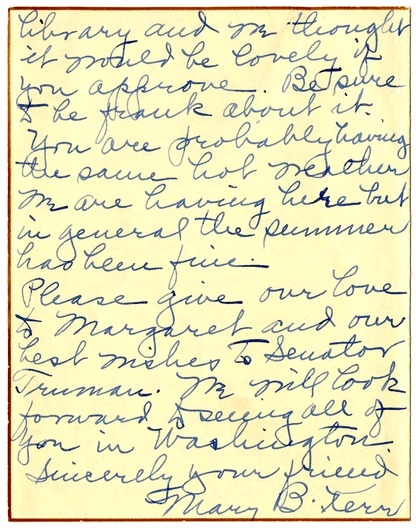 library and we thought
it would be lovely if
you approve. Be sure
to be frank about it.
You are probably having
the same hot weather
we are having here but
in general the summer
has been fine.
Please give our love
to Margaret and our
best wishes to Senator
Truman. We will look
forward to seeing all of
you in Washington
Sincerely your friend
Mary B. Kerr